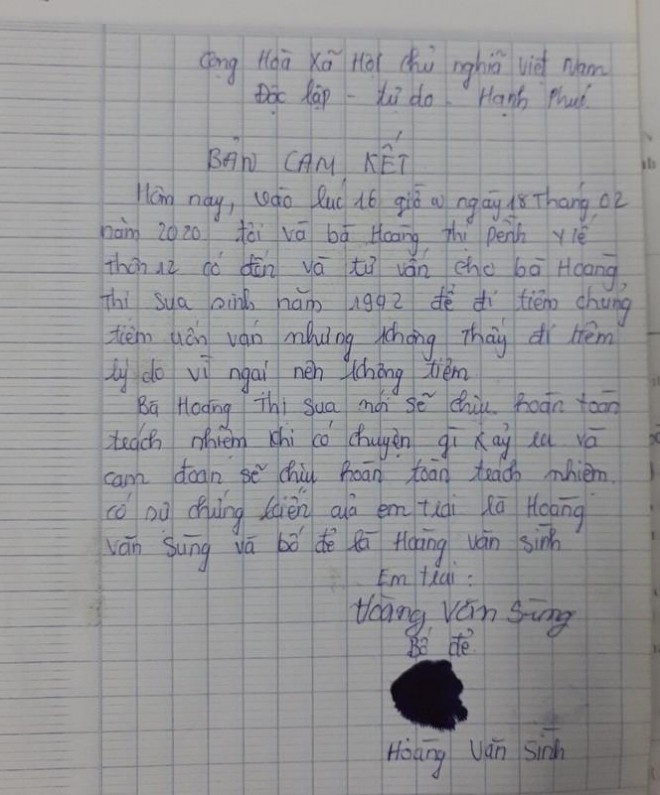 Cộng Hoà Xã Hội chủ nghiã việt Nam
Độc lập - tự do - Hạnh Phúc
BẢN CAM KẾT
Hôm nay, vào lúc 16 giờ ngày 18 Tháng 02
năm 2020 tôi và bà Hoàng Thị Pềnh y tế
thôn 12 có đến và tư vấn cho bà Hoàng
Thị Sua sinh năm 1992 để đi tiêm chủng
tiêm uốn ván nhưng không Thấy đi tiêm
lý do vì ngại nên không tiêm
Bà Hoàng Thị Sua nói sẽ chịu hoàn toàn
teách nhiệm khi có chuyện gì xảy ra và
cam đoan sẽ chịu hoàn toàn teách nhiệm.
có sự chứng kiến của em trai là Hoàng
văn Sùng và bố đẻ là Hoàng văn sinh
Em trai :
Hoàng Văn Sùng
Bố đẻ
Hoàng Văn Sinh